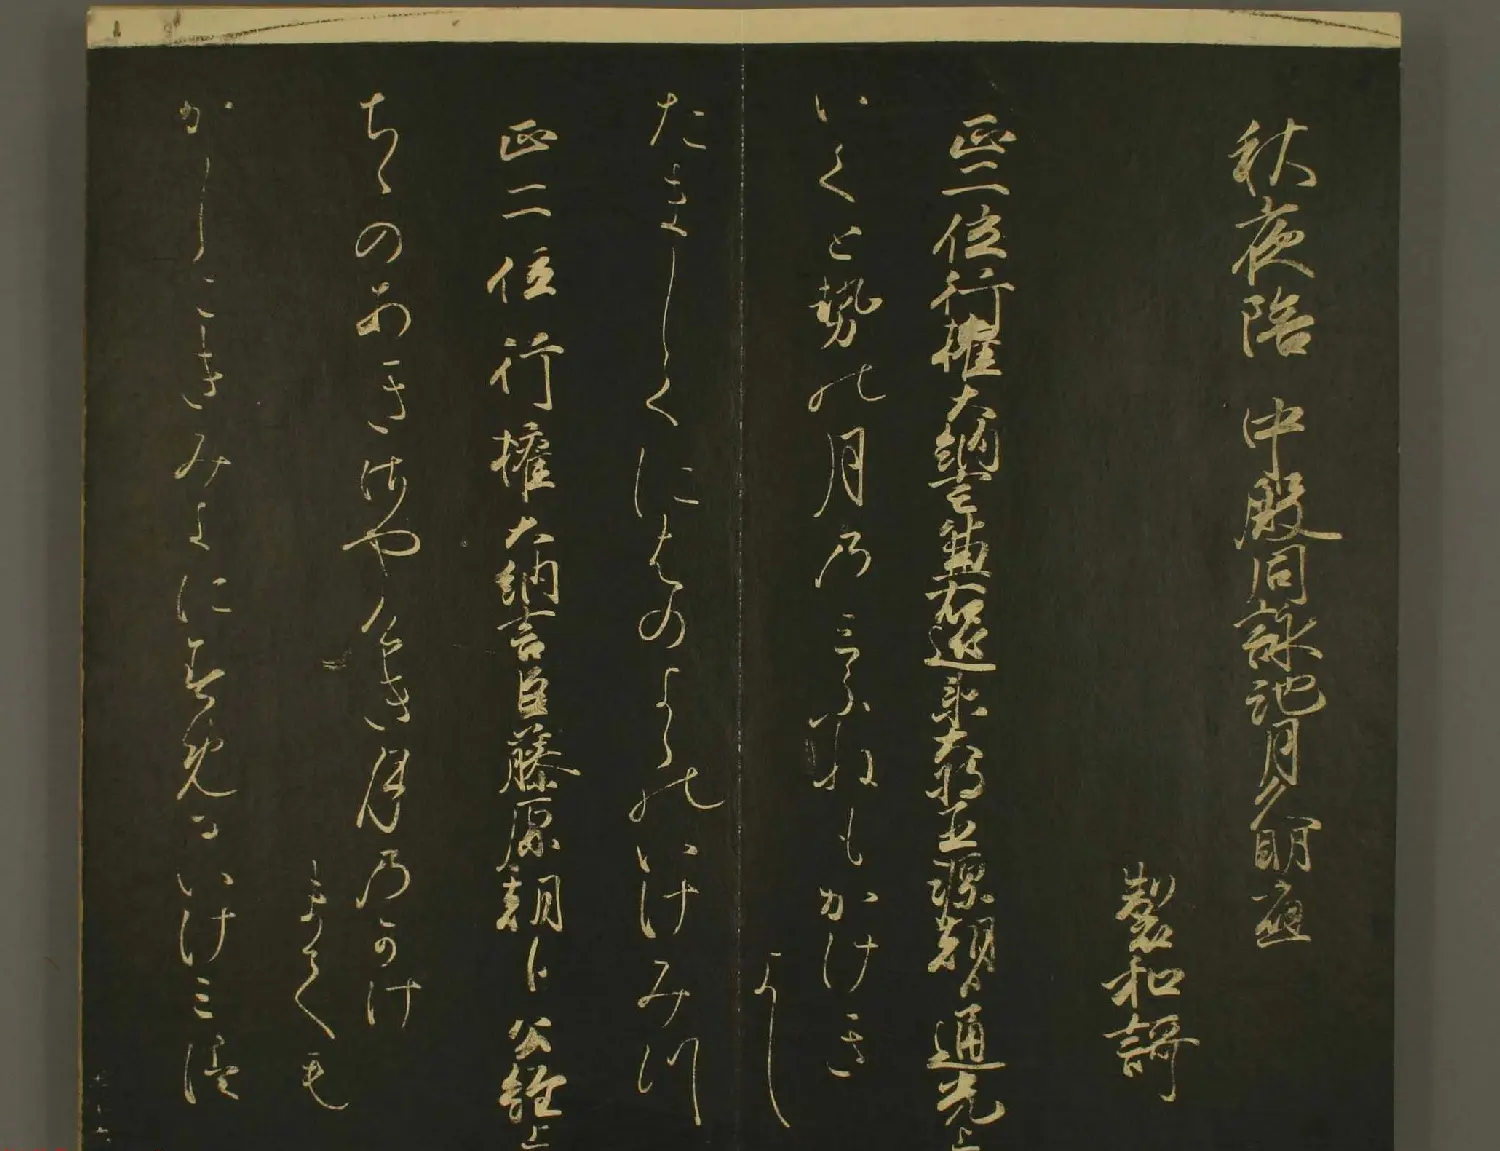 秋夜陪 中殿同詠池月久明應
製和謌
正二位行權大納言兼右近衛大將臣源朝臣通光上
いくと勢の月乃三ふねもかけき
よし
たましくにはのよゝのいけみつ
正二位行權大納言臣藤原朝臣公經上
ちゝのあきはや
き月乃かけ
まてくも
かしこききみよにすめるいけ三つ